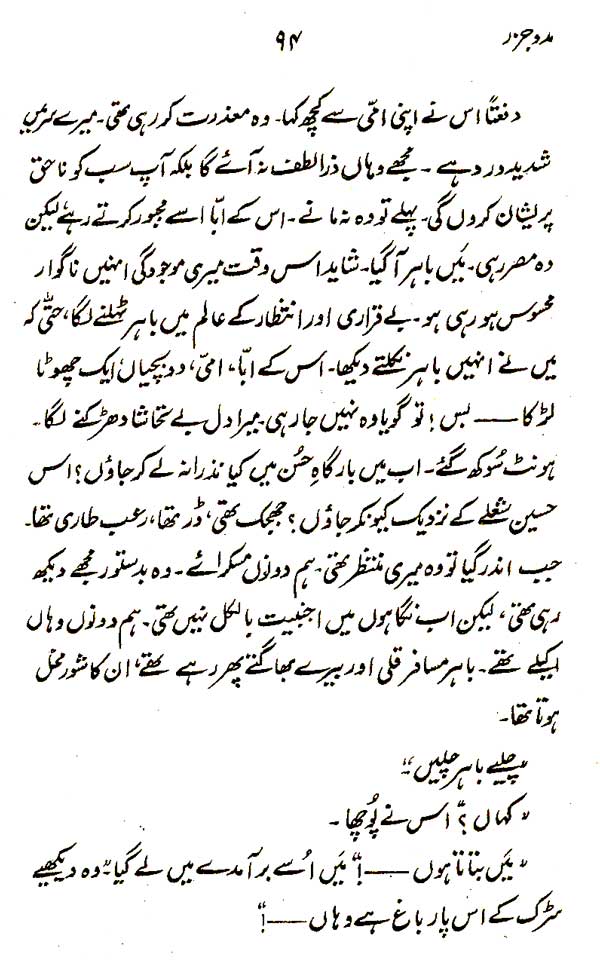 مدوجزر ۹۴
دفعتاً اس نے اپنی امّی سے کچھ کہا۔ وہ معذرت کر رہی تھی۔ میرے سر میں
شدید درد ہے۔ مجھے وہاں ذرا لطف نہ آئے گا بلکہ آپ سب کو ناحق
پریشان کروں گی۔ پہلے تو وہ نہ مانے۔ اس کے ابّا اسے مجبور کرتے رہے لیکن
وہ مصر رہی۔ مَیں باہر آ گیا۔ شاید اس وقت میری موجودگی انہیں ناگوار
محسوس ہو رہی ہو۔ بے قراری اور انتظار کے عالم میں باہر ٹہلنے لگا، حتّٰی کہ
میں نے انہیں باہر نکلتے دیکھا۔ اس کے ابّا، امّی، دو بچیاں ایک چھوٹا
لڑکا —— بس! تو گویا وہ نہیں جا رہی۔ میرا دل بے تحاشا دھڑکنے لگا۔
ہونٹ سُوکھ گئے۔ اب میں بارگاہِ حسُن میں کیا نذرانہ لے کر جاؤں؟ اس
حسین شعلے کے نزدیک کیونکر جاؤں؟ جھجک تھی، ڈر تھا، رعب طاری تھا۔
جب اندر گیا تو وہ میری منتظر تھی۔ ہم دونوں مسکرائے۔ وہ بدستور مجھے دیکھ
رہی تھی، لیکن اب نگاہوں میں اجنبیت بالکل نہیں تھی۔ ہم دونوں وہاں
اکیلے تھے۔ باہر مسافر قلی اور بیرے بھاگتے پھر رہے تھے، ان کا شور مخل
ہوتا تھا۔
”چلیے باہر چلیں“
”کہاں؟“ اس نے پُوچھا۔
”مَیں بتاتا ہوں ——!“ مَیں اُسے برآمدے میں لے گیا۔ ”وہ دیکھیے
سڑک کے اس پار باغ ہے وہاں ——!“